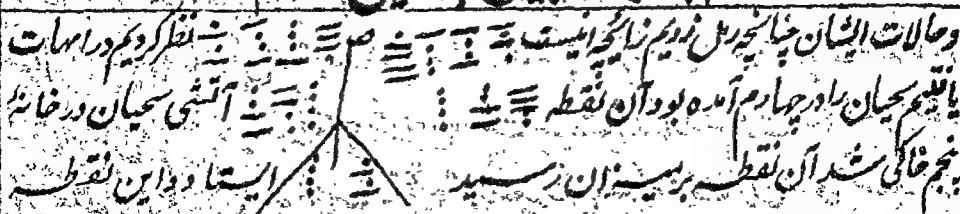 وحالات ایشان چنانچه رمل زدیم زائچه اینست نظر کردیم در امهات
یافتیم لحیان را در چهارم آمده بود آن نقطه آتشی لحیان در خانهٔ
پنجم خاکی شد آن نقطه بر میزان رسید ایستاد و این نقطه